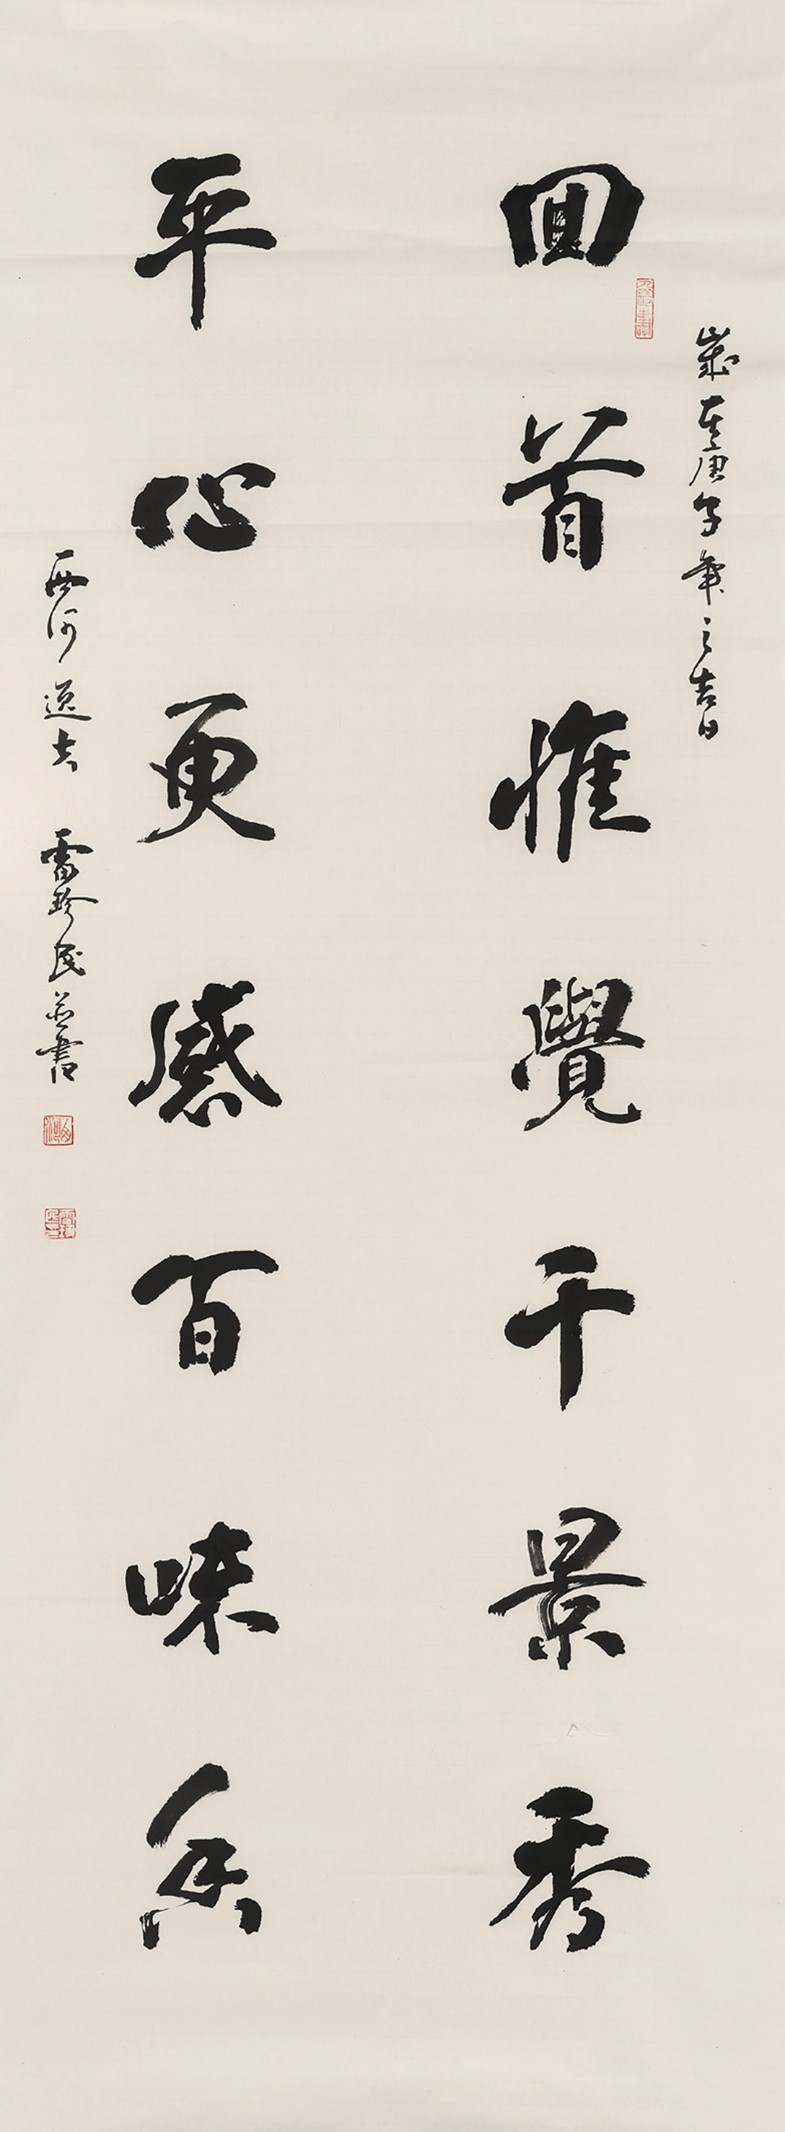 歲在庚子年之吉日
回首惟覺千景秀
平心更感百味余
西河逸士 雷珍民并書